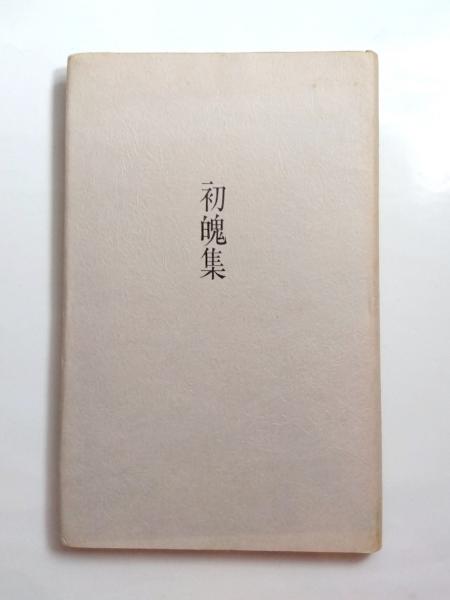 初魄集